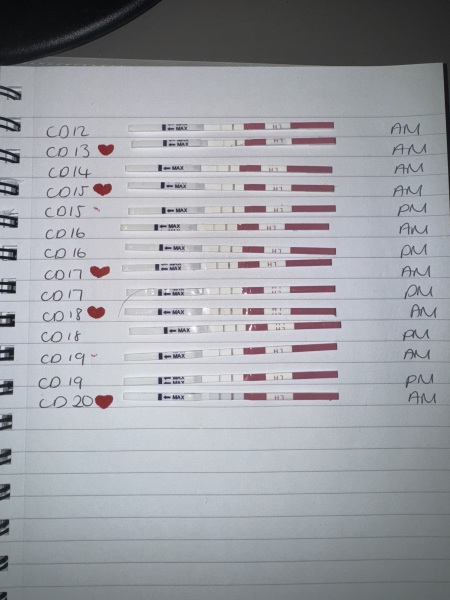 CD12 MAX LH AM
CD13 MAX LH AM
CD14 MAX LH AM
CD15 MAX LH AM
CD15 MAX LH PM
CD16 MAX LH AM
CD16 MAX LH PM
CD17 MAX LH AM
CD17 MAX LH PM
CD18 MAX LH AM
CD18 MAX LH PM
CD19 MAX LH AM
CD19 MAX LH PM
CD20 MAX LH AM